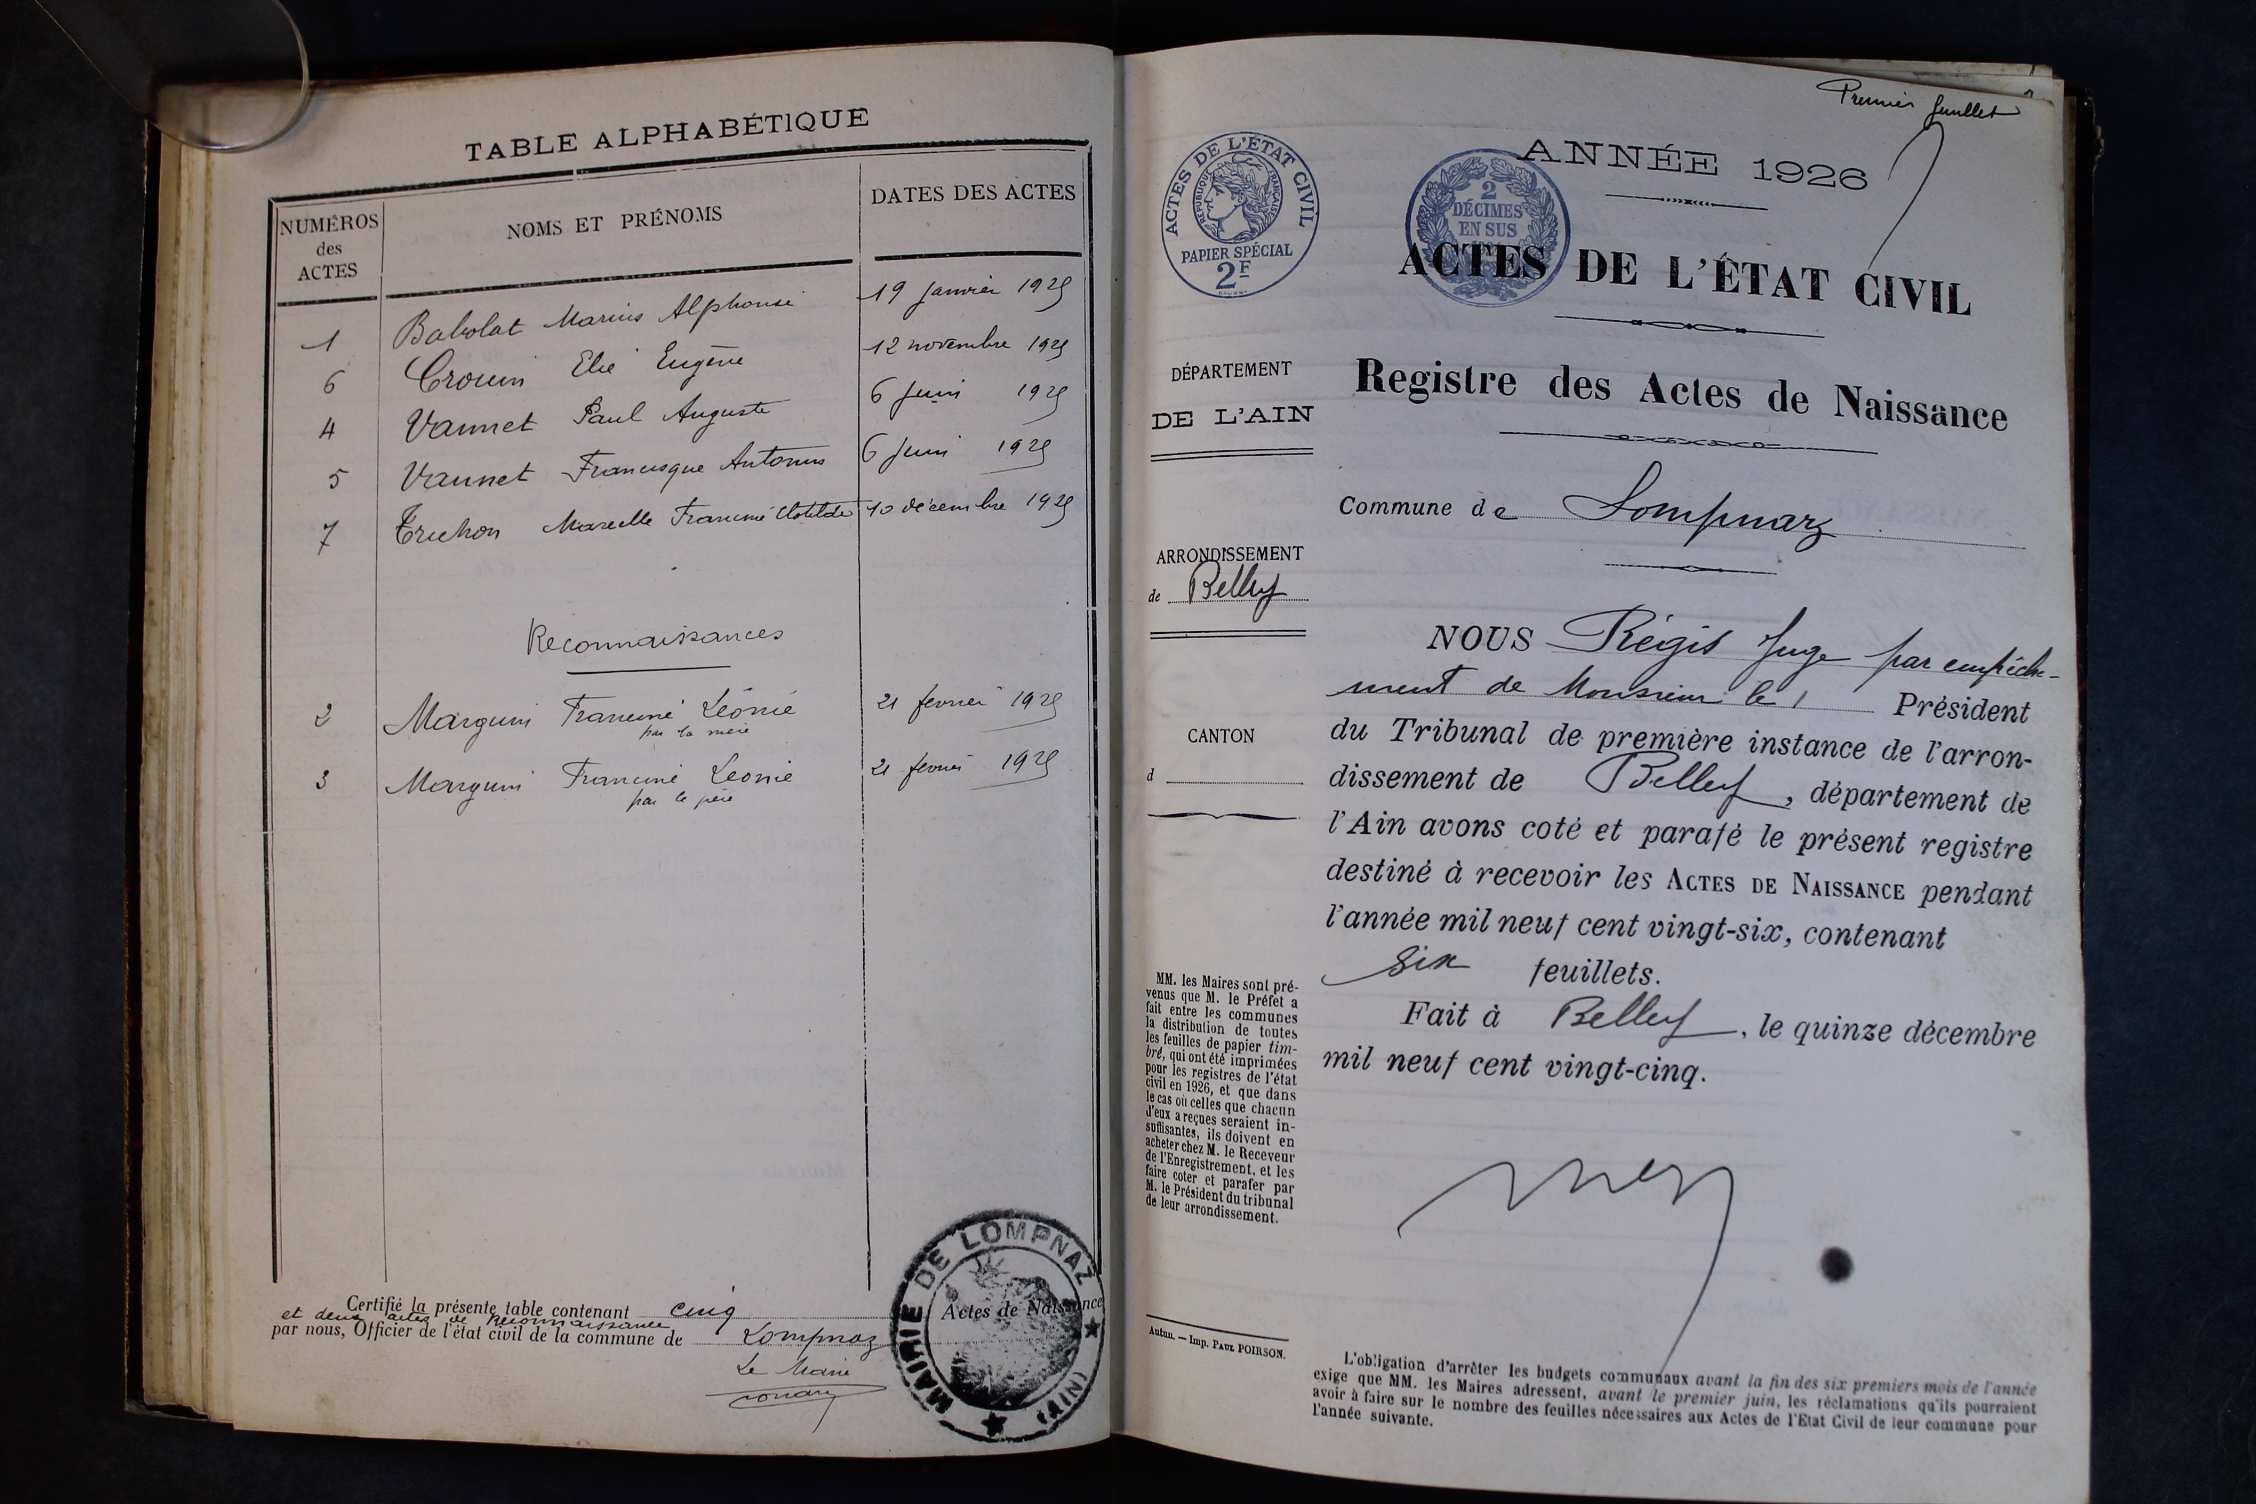 TABLE ALPHABÉTIQUE
NUMÉROS
des
ACTES
NOMS ET PRÉNOMS
DATES DES ACTES
1 Babolat Marius Alphonse 19 janvier 1925
6 Crouin Elie Eugène 12 novembre 1925
4 Vannet Paul Auguste 6 juin 1925
5 Vannet Francisque Antonin 6 juin 1925
7 Truchon Marcelle Francine Clotilde 10 décembre 1925
Reconnaissances
2 Marguin Francine Léonie 21 février 1925
par la mère
3 Marguin Francine Léonie 21 février 1925
par le père
Certifié la présente table contenant cinq Actes de Naissance
et deux actes de reconnaissance
par nous, Officier de l'état civil de la commune de Lompnaz
Le Maire
MAIRIE DE LOMPNAZ
(AIN)
Premier feuillet
ACTES DE L'ÉTAT CIVIL
RÉPUBLIQUE FRANÇAISE
PAPIER SPÉCIAL
2F
2
DÉCIMES
EN SUS
ANNÉE 1926
ACTES DE L'ÉTAT CIVIL
Registre des Actes de Naissance
DÉPARTEMENT
DE L'AIN
Commune de Lompnaz
ARRONDISSEMENT
de Belley
CANTON
d
NOUS Régis Juge par empêche-
ment de Monsieur le Président
du Tribunal de première instance de l'arron-
dissement de Belley, département de
l'Ain avons coté et parafé le présent registre
destiné à recevoir les ACTES DE NAISSANCE pendant
l'année mil neuf cent vingt-six, contenant
six feuillets.
Fait à Belley, le quinze décembre
mil neuf cent vingt-cinq.
MM. les Maires sont pré-
venus que M. le Préfet a
fait entre les communes
la distribution de toutes
les feuilles de papier tim-
bré, qui ont été imprimées
pour les registres de l'état
civil en 1926, et que dans
le cas où celles que chacun
d'eux a reçues seraient in-
suffisantes, ils doivent en
acheter chez M. le Receveur
de l'Enregistrement, et les
faire coter et parafer par
M. le Président du tribunal
de leur arrondissement.
Autun. — Imp. PAUL POIRSON.
L'obligation d'arrêter les budgets communaux avant la fin des six premiers mois de l'année
exige que MM. les Maires adressent, avant le premier juin, les réclamations qu'ils pourraient
avoir à faire sur le nombre des feuilles nécessaires aux Actes de l'Etat Civil de leur commune pour
l'année suivante.